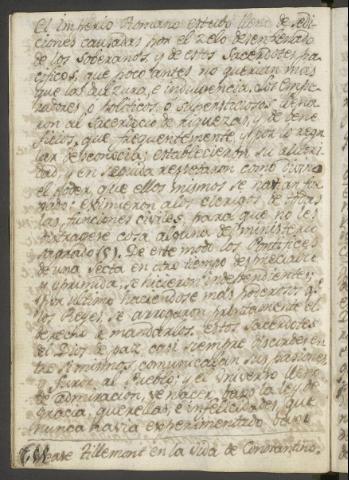 El Imperio Romano estubo lleno de sedi-
ciones causadas por el zelo desenfrenado
de los Soberanos, y de estos Sacerdotes pa-
cificos, que poco antes no querian mas
que la dulzura, e indulgencia. Los Empe-
radores o politicos, o supersticiosos llena-
ron al Sacerdocio de riquezas, y de bene-
ficios, que frequentemente, y por lo regu-
lar desconocio: establecieron su autori-
dad, y en seguida respetaron como Divino
el poder que ellos mismos se havian for-
mado: eximieron a los clerigos de todas
las funciones civiles, para que no les
distragese cosa alguna del ministerio
sagrado (S). De este modo los Pontifices
de una secta en otro tiempo despreciable
y oprimida, se hicieron independientes;
y por ultimo haciendose mas poderosos q.e
los Reyes, se arrogaron prontamente el
derecho de mandarlos. Estos Sacerdotes
del Dios de paz, casi siempre discordes en-
tre si mismos, comunicaban sus pasiones,
y furor al Pueblo; y el universo lleno
de admiracion, ve nacer bajo la ley de
gracia, querellas, e infelicidades que
nunca havia experimentado bajo
Vease Tillemont en la Vida de Constantino.